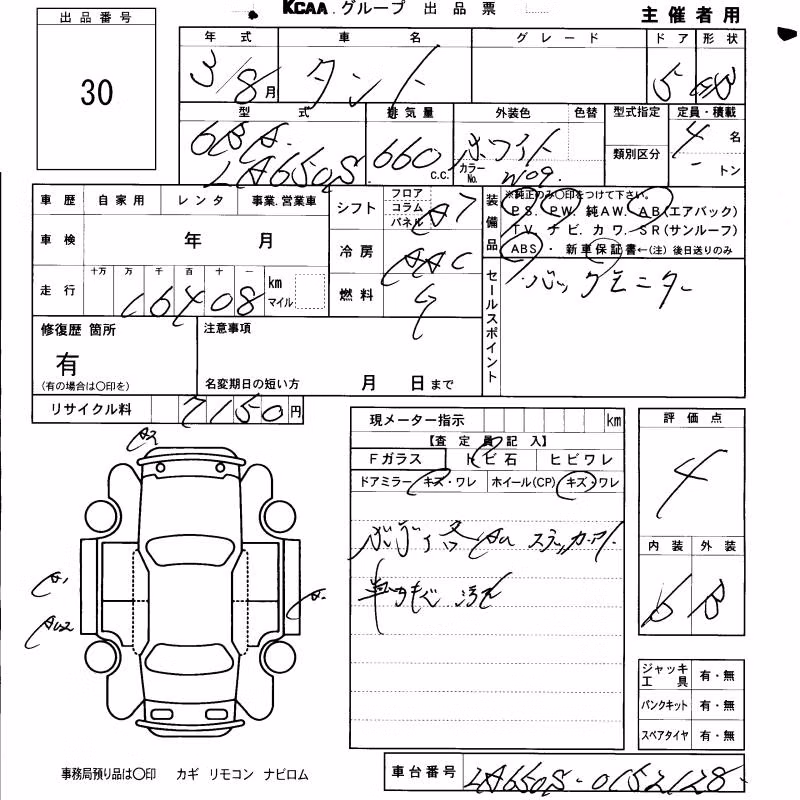 KCAA.グループ 出品票
主催者用
出品番号
30
年式 車名 グレード ドア 形状
3/8月 タント 5
型式 排気量 外装色 色替 型式指定 定員・積載
6BA 660 c.c. ホワイト 4名
LA650S カラーNo. W09 類別区分 - トン
車歴 自家用 レンタ 事業.営業車
車検 年 月
走行 十万 万 千 百 十 一 km マイル
16408
シフト フロア コラム パネル A7
冷房 AAC
燃料
装備品 ※純正のみ〇印をつけて下さい。
PS. PW. 純AW. AB(エアバック)
TV. ナビ. カワ. SR(サンルーフ)
ABS・新車保証書←(注)後日送りのみ
セールスポイント
バックモニター
修復歴 箇所
有
(有の場合は〇印を)
注意事項
名変期日の短い方 月 日まで
リサイクル料 7150円
現メーター指示 km
【査定員記入】
Fガラス トビ石 ヒビワレ
ドアミラー キズ・ワレ ホイール(CP) キズ・ワレ
ボディ各
評価点
4
内装 外装
B
A1
ジャッキ工具 有・無
パンクキット 有・無
スペアタイヤ 有・無
事務局預り品は〇印 カギ リモコン ナビロム
車台番号 LA650S-0152128